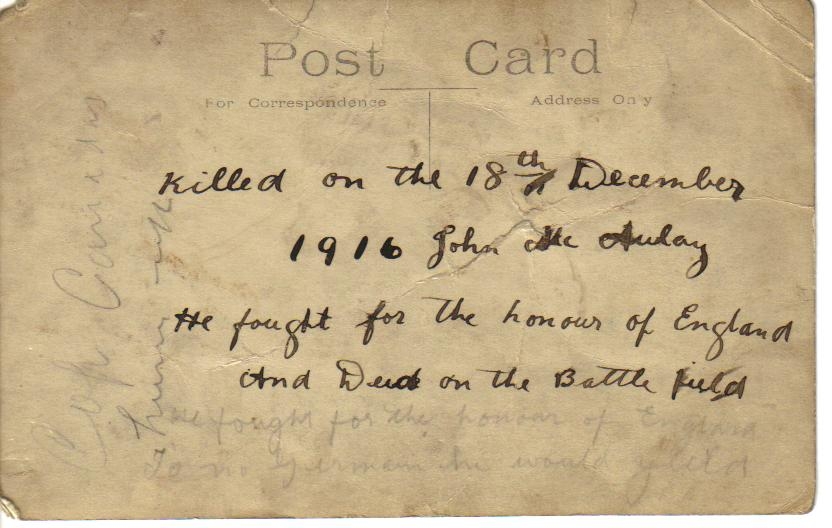 Post Card
For Correspondence
Address Only
Killed on the 18th December
1916 John Mc Aulay
He fought for the honour of England
And Died on the Battle field
He fought for the honour of England
To no Germain he would yield